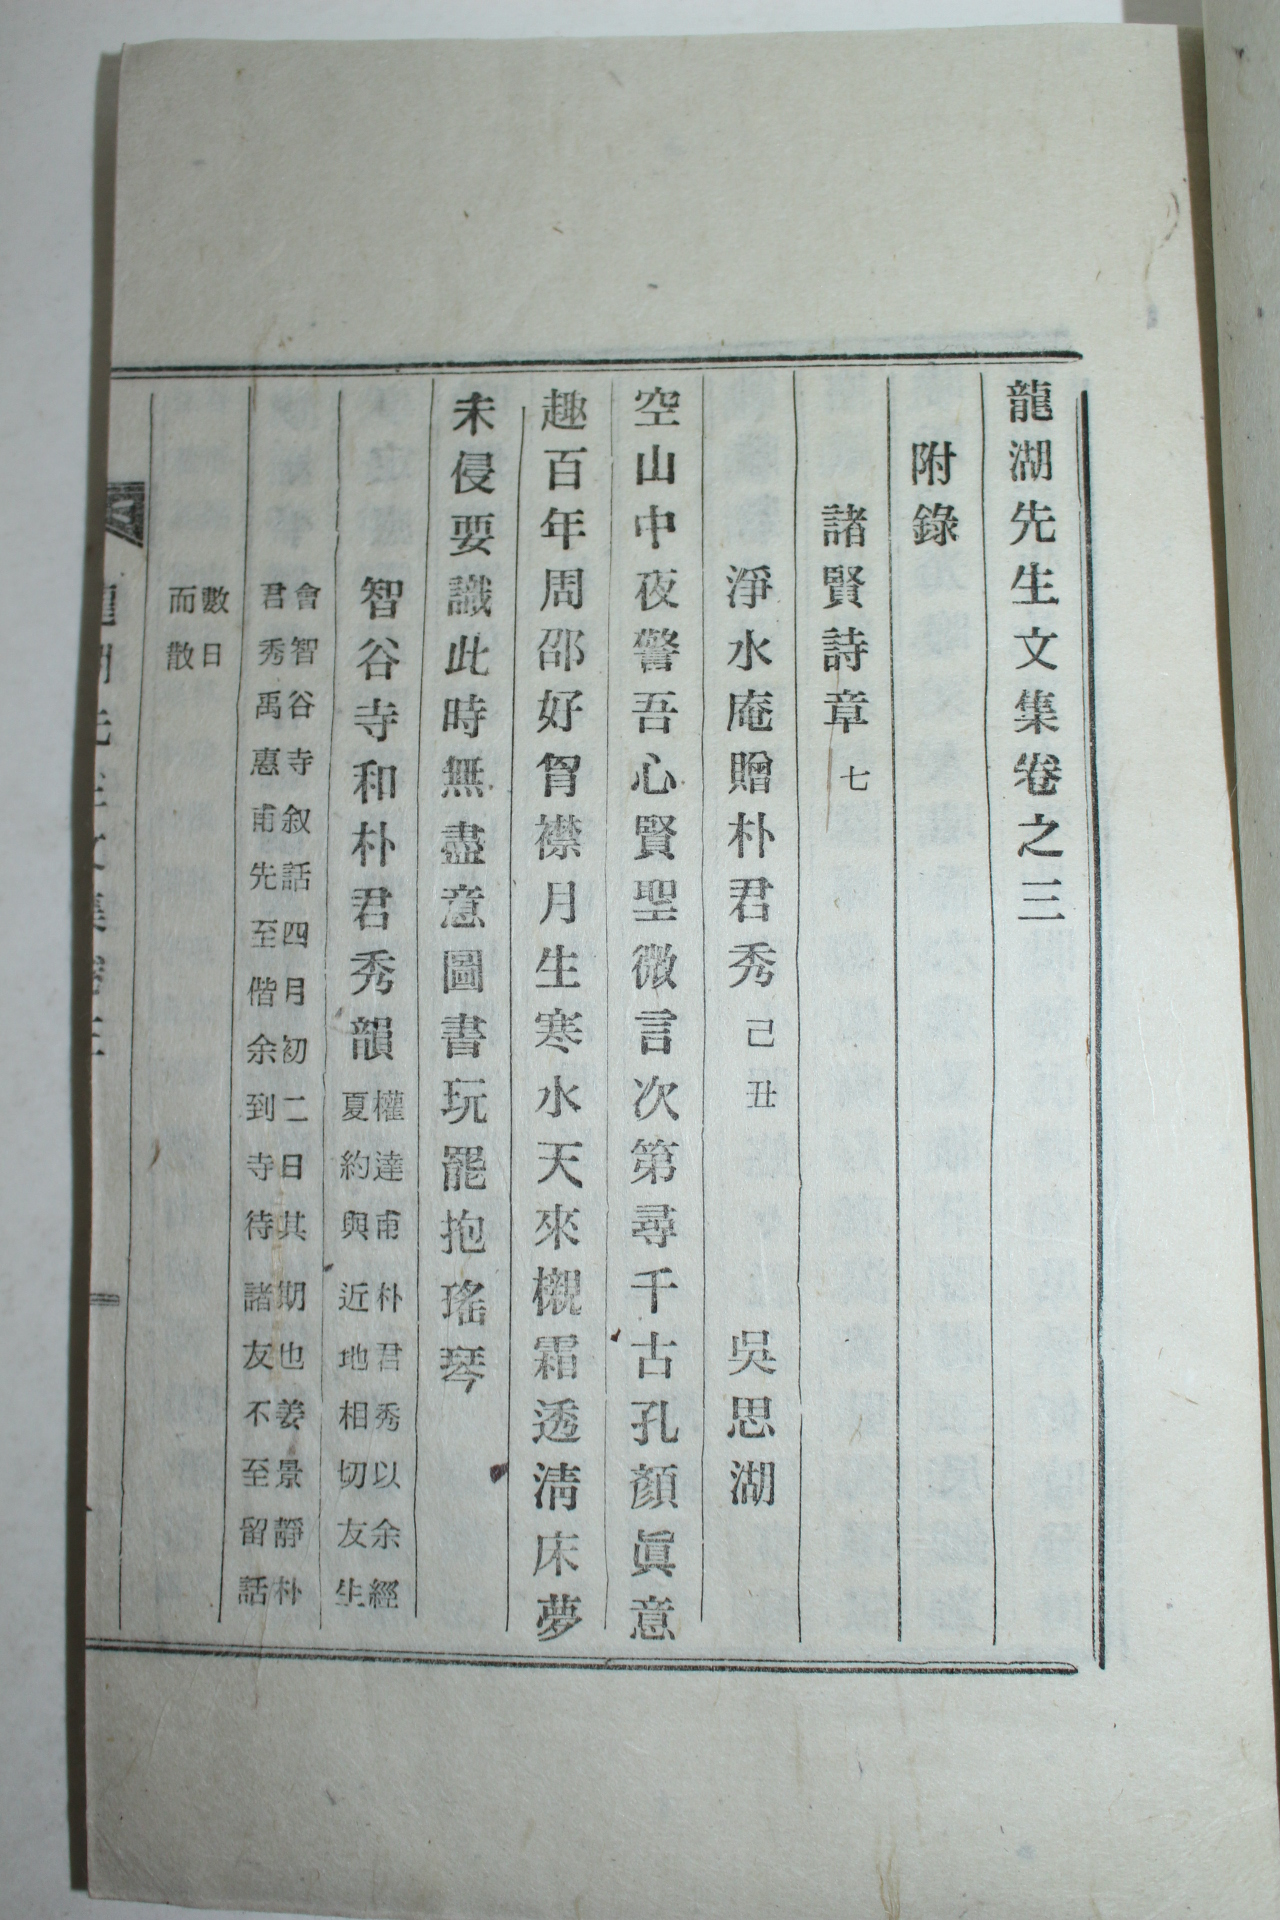 龍湖先生文集卷之三
附錄
諸賢詩章 七
淨水庵贈朴君秀 己丑 吳思湖
空山中夜警吾心賢聖微言次第尋千古孔顏眞意
趣百年周邵好胷襟月生寒水天來櫬霜透淸床夢
未侵要識此時無盡意圖書玩罷抱瑤琴
智谷寺和朴君秀韻 權達甫朴君秀以余經
夏約與近地相切友生
會智谷寺叙話四月初二日其期也姜景靜朴
君秀禹惠甫先至偕余到寺待諸友不至留話
數日
而散